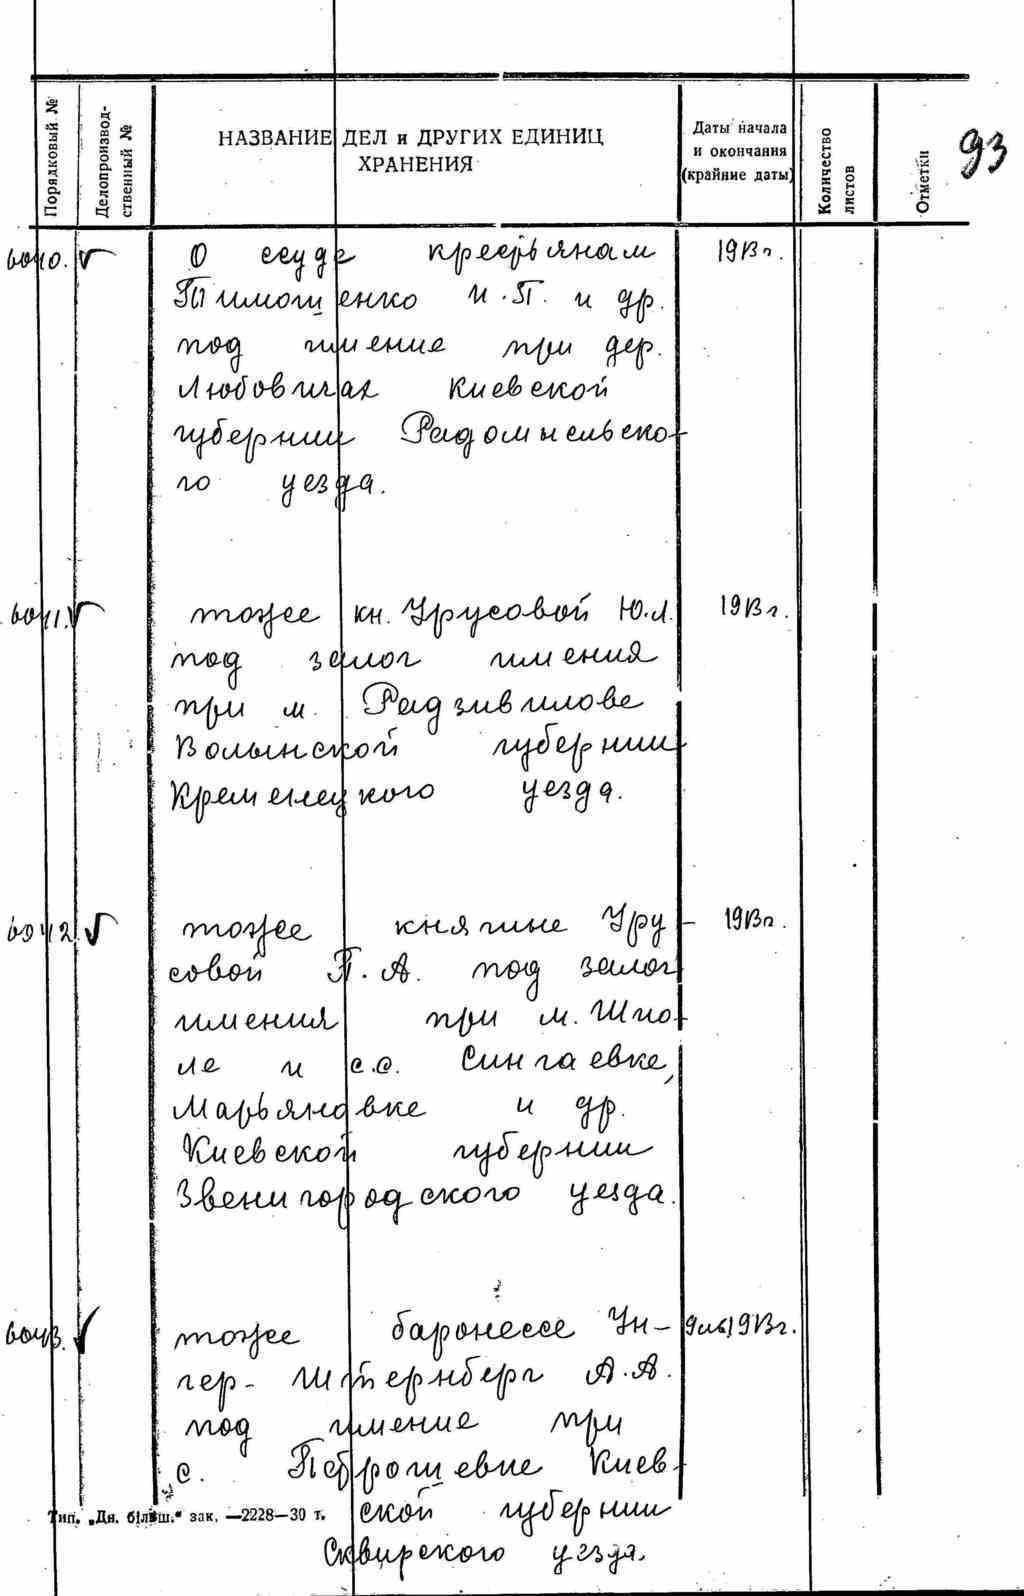 93
Порядковый №
Делопроизвод-
ственный №
НАЗВАНИЕ ДЕЛ и ДРУГИХ ЕДИНИЦ
ХРАНЕНИЯ
Даты начала
и окончания
(крайние даты)
Количество
листов
Отметки
6040. √ О ссуде крестьянам 1913 г.
Тимошенко И.П. и др.
под имение при дер.
Любовичах Киевской
губернии Радомысльско-
го уезда.
6041. √ тоже кн. Урусовой Ю.Л. 1913 г.
под залог имения
при м. Радзивилове
Волынской губернии
Кременецкого уезда.
6042. √ тоже княгине Уру- 1913 г.
совой П.А. под залог
имения при м. Шпо-
ле и с.с. Сингаевке,
Марьяновке и др.
Киевской губернии
Звенигородского уезда.
6043. √ тоже баронессе Ун- 1913 г.
гер-Штернберг А.А.
под имение при
с. Киев-
ской губернии
Сквирского уезда.
Тип. „Дн. більш.“ зак. —2228—30 т.